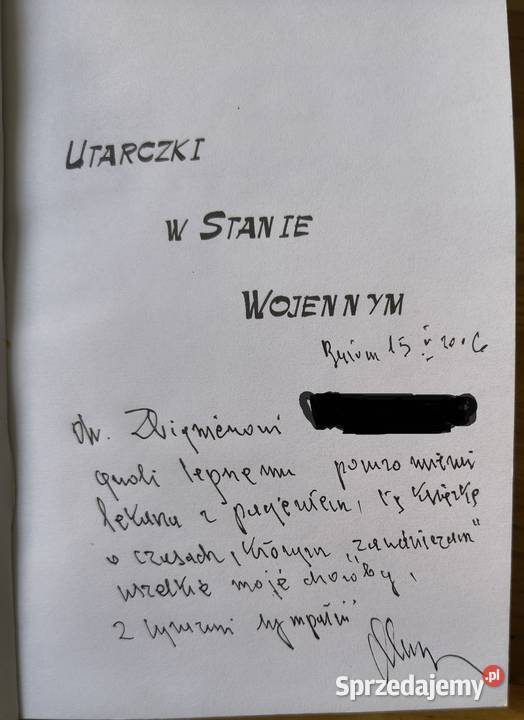 UTARCZKI
W STANIE
WOJENNYM
Bytom 15 V 2006
dr. Zbigniewowi
gwoli lepszemu porozumieniu
lekarza z pacjentem, tę książkę
o czasach, którym "zawdzięczam"
wszelkie moje choroby,
z wyrazami sympatii
Sprzedajemy.pl